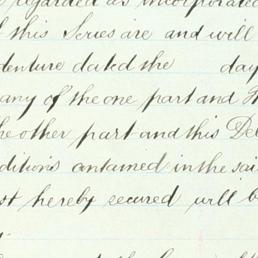 regarded as incorporated
this Series are and will
denture dated the day
any of the one part and
he other part and this De
ditions contained in the sai
st hereby secured will b